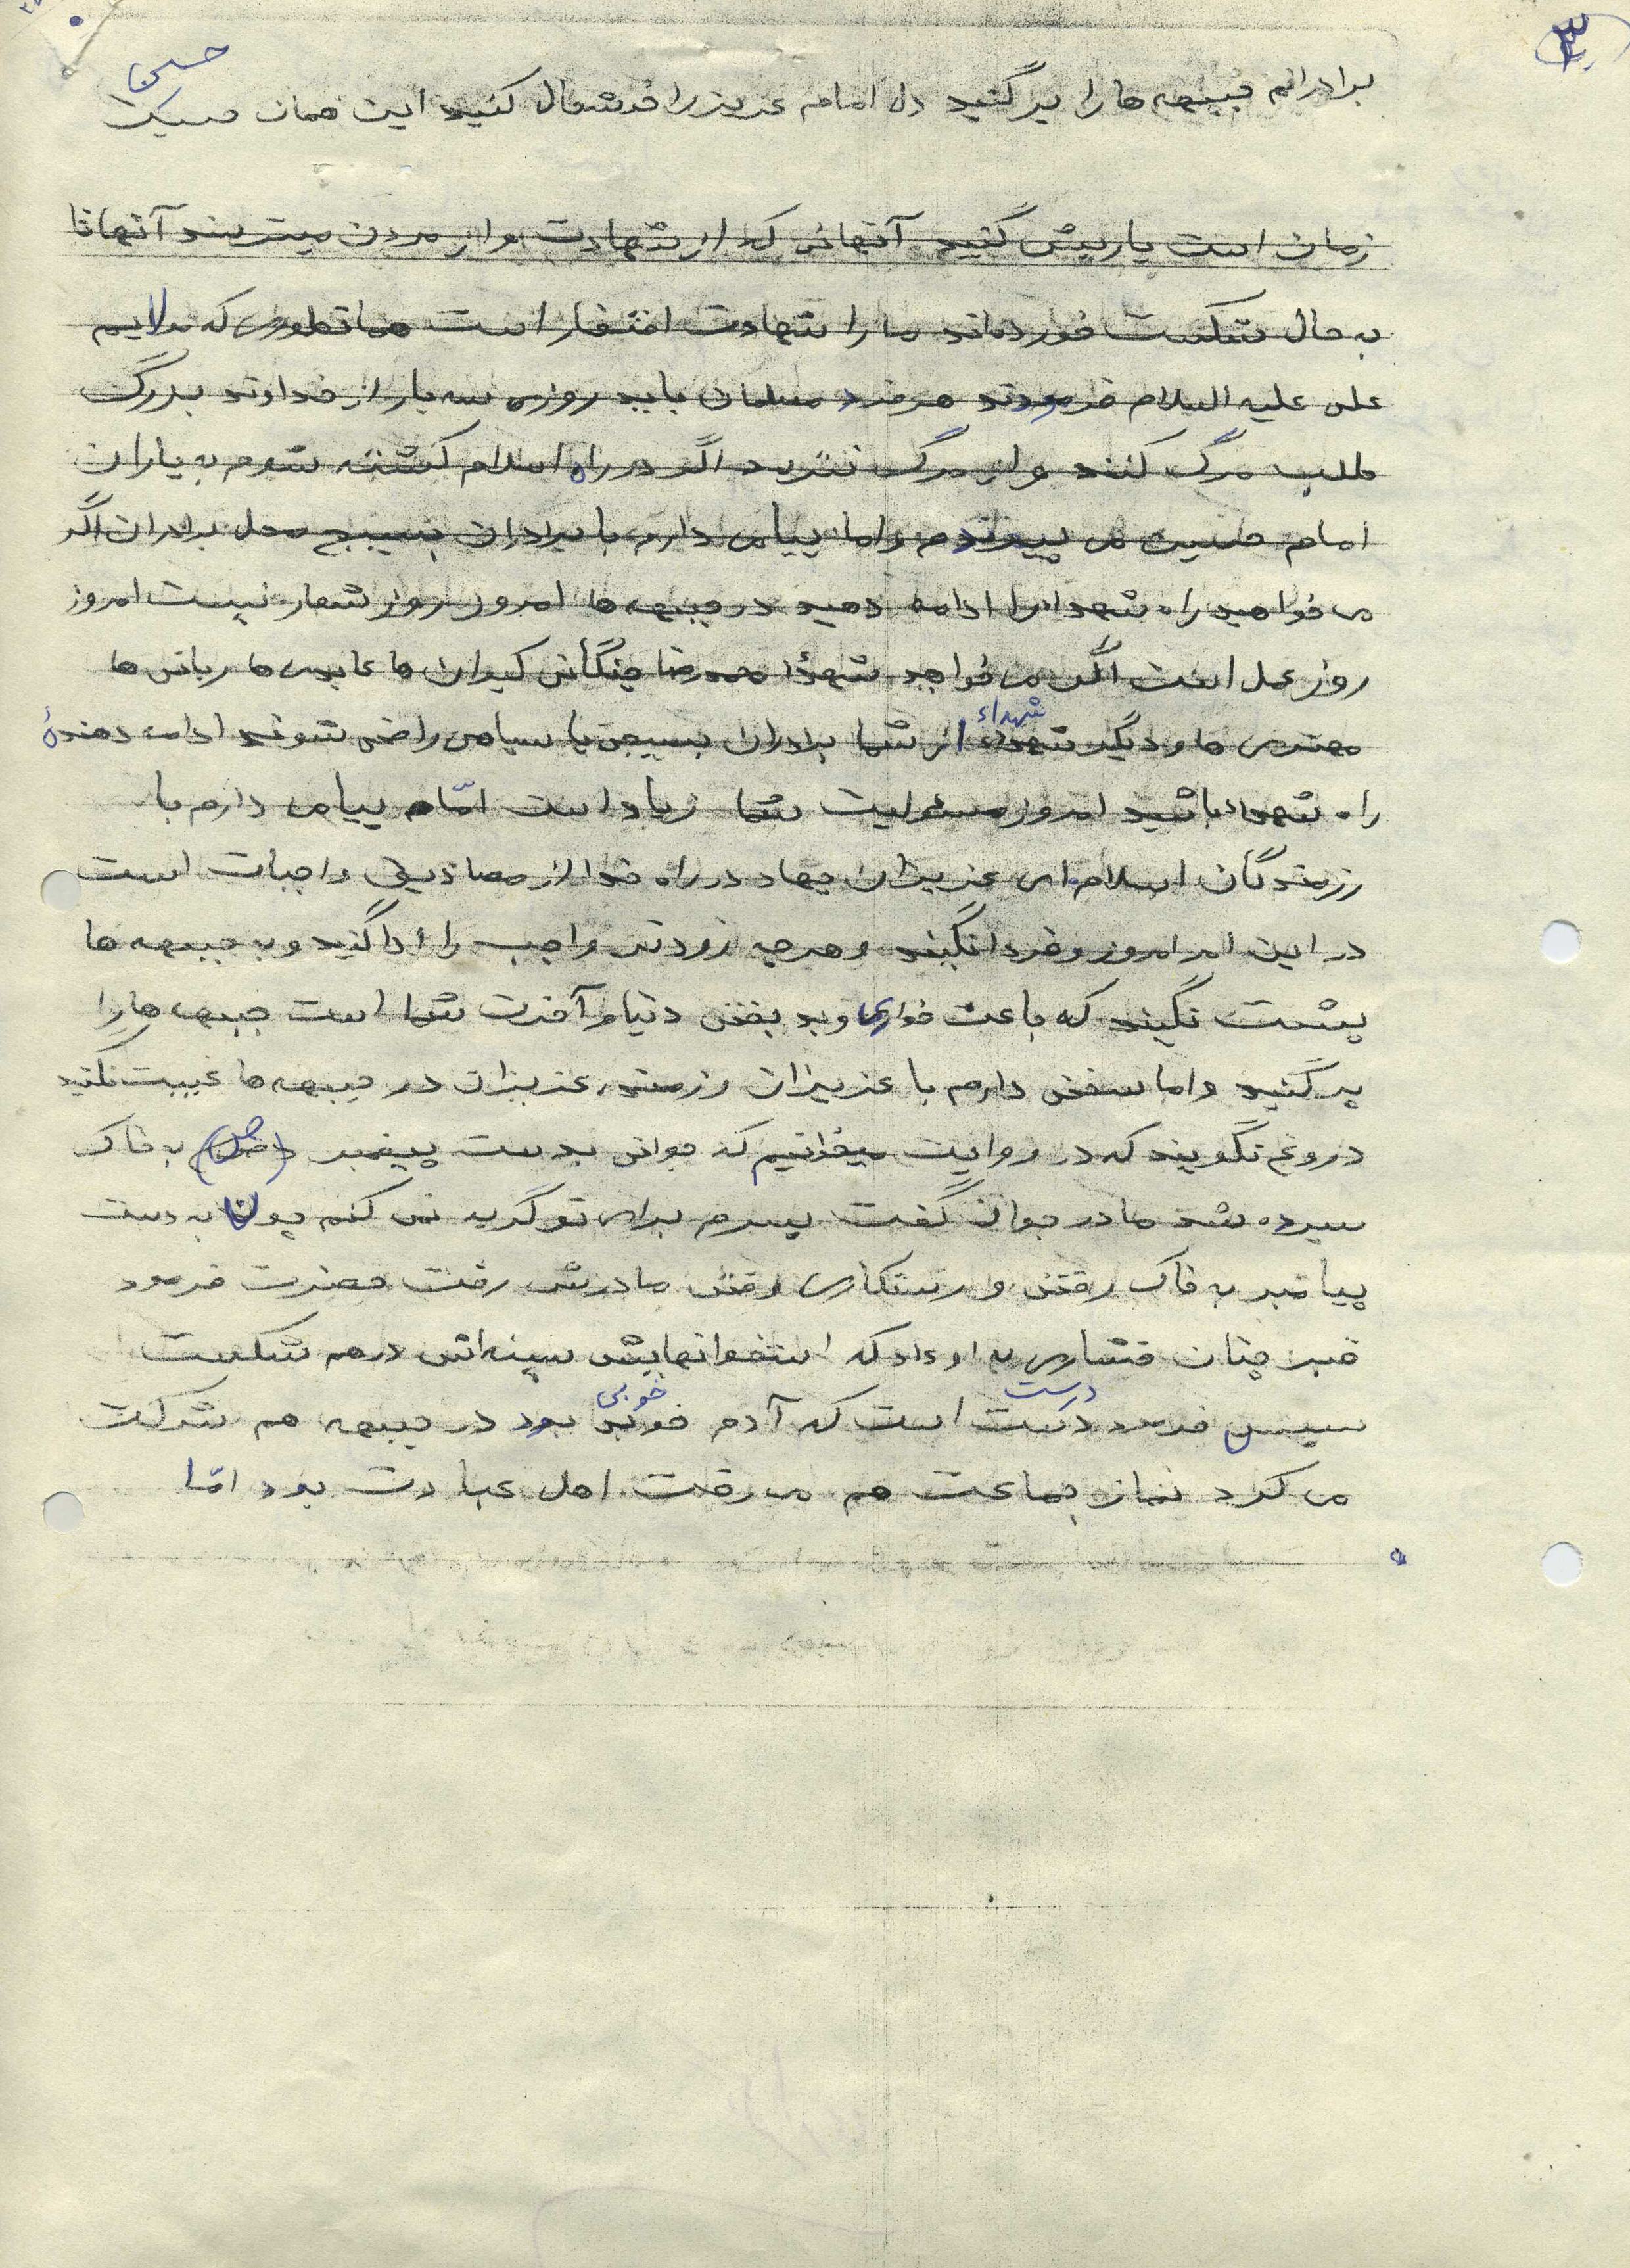 ۳
حسین
برادرانم جبهه ها را پر کنید دل امام عزیز را خوشحال کنید این همان
زمان است یاریش کنید آنهائی که از شهادت و از مردن میترسند آنها تا
به حال شکست خورده‌اند ما را شهادت افتخار است همانطوری که مولایم
علی علیه السلام فرمودند هر فرد مسلمان باید روزی سه بار از خداوند بزرگ
طلب مرگ کنند و از مرگ نترسد اگر در راه اسلام کشته شوم به یاران
امام حسین می پیوندم و اما پیامی دارم با برادران بسیج محل برادران اگر
می خواهید راه شهدا را ادامه دهید در جبهه ها امروز روز شعار نیست امروز
روز عمل است اگر می خواهید شهدا محمدرضا چنگائی کیوان ها عابدی ها ربانی ها
مهتری ها و دیگر شهداء از شما برادران بسیجی یا سپاهی راضی شوند ادامه دهندۀ
راه شهدا باشید امروز مسئولیت شما زیاد است امّا پیامی دارم با
رزمندگان اسلام ای عزیزان جهاد در راه خدا از واجبات است
در این امر امروز و فردا نکیند و هرچه زودتر واجب را ادا کنید و به جبهه ها
پشت نکیند که باعث خواری و بدبختی دنیا و آخرت شما است جبهه ها را
پر کنید و اما سخنی دارم با عزیزان رزمنده عزیزان در جبهه ها غیبت نکنید
دروغ نگویند که در روایت میخوانیم که جوانی بدست پیغمبر (ص) به خاک
سپرده شد مادر جوان گفت پسرم برای تو گریه نمی کنم چون به دست
پیامبر به خاک رفتی و رستگاری وقتی مادرش رفت حضرت فرمود
قبر چنان فشاری به او داد که استخوانهایش سینه‌اش درهم شکست
سپس فرمود درست است که آدم خوبی بود در جبهه هم شرکت
می کرد نماز جماعت هم می رفت اهل عبادت بود امّا